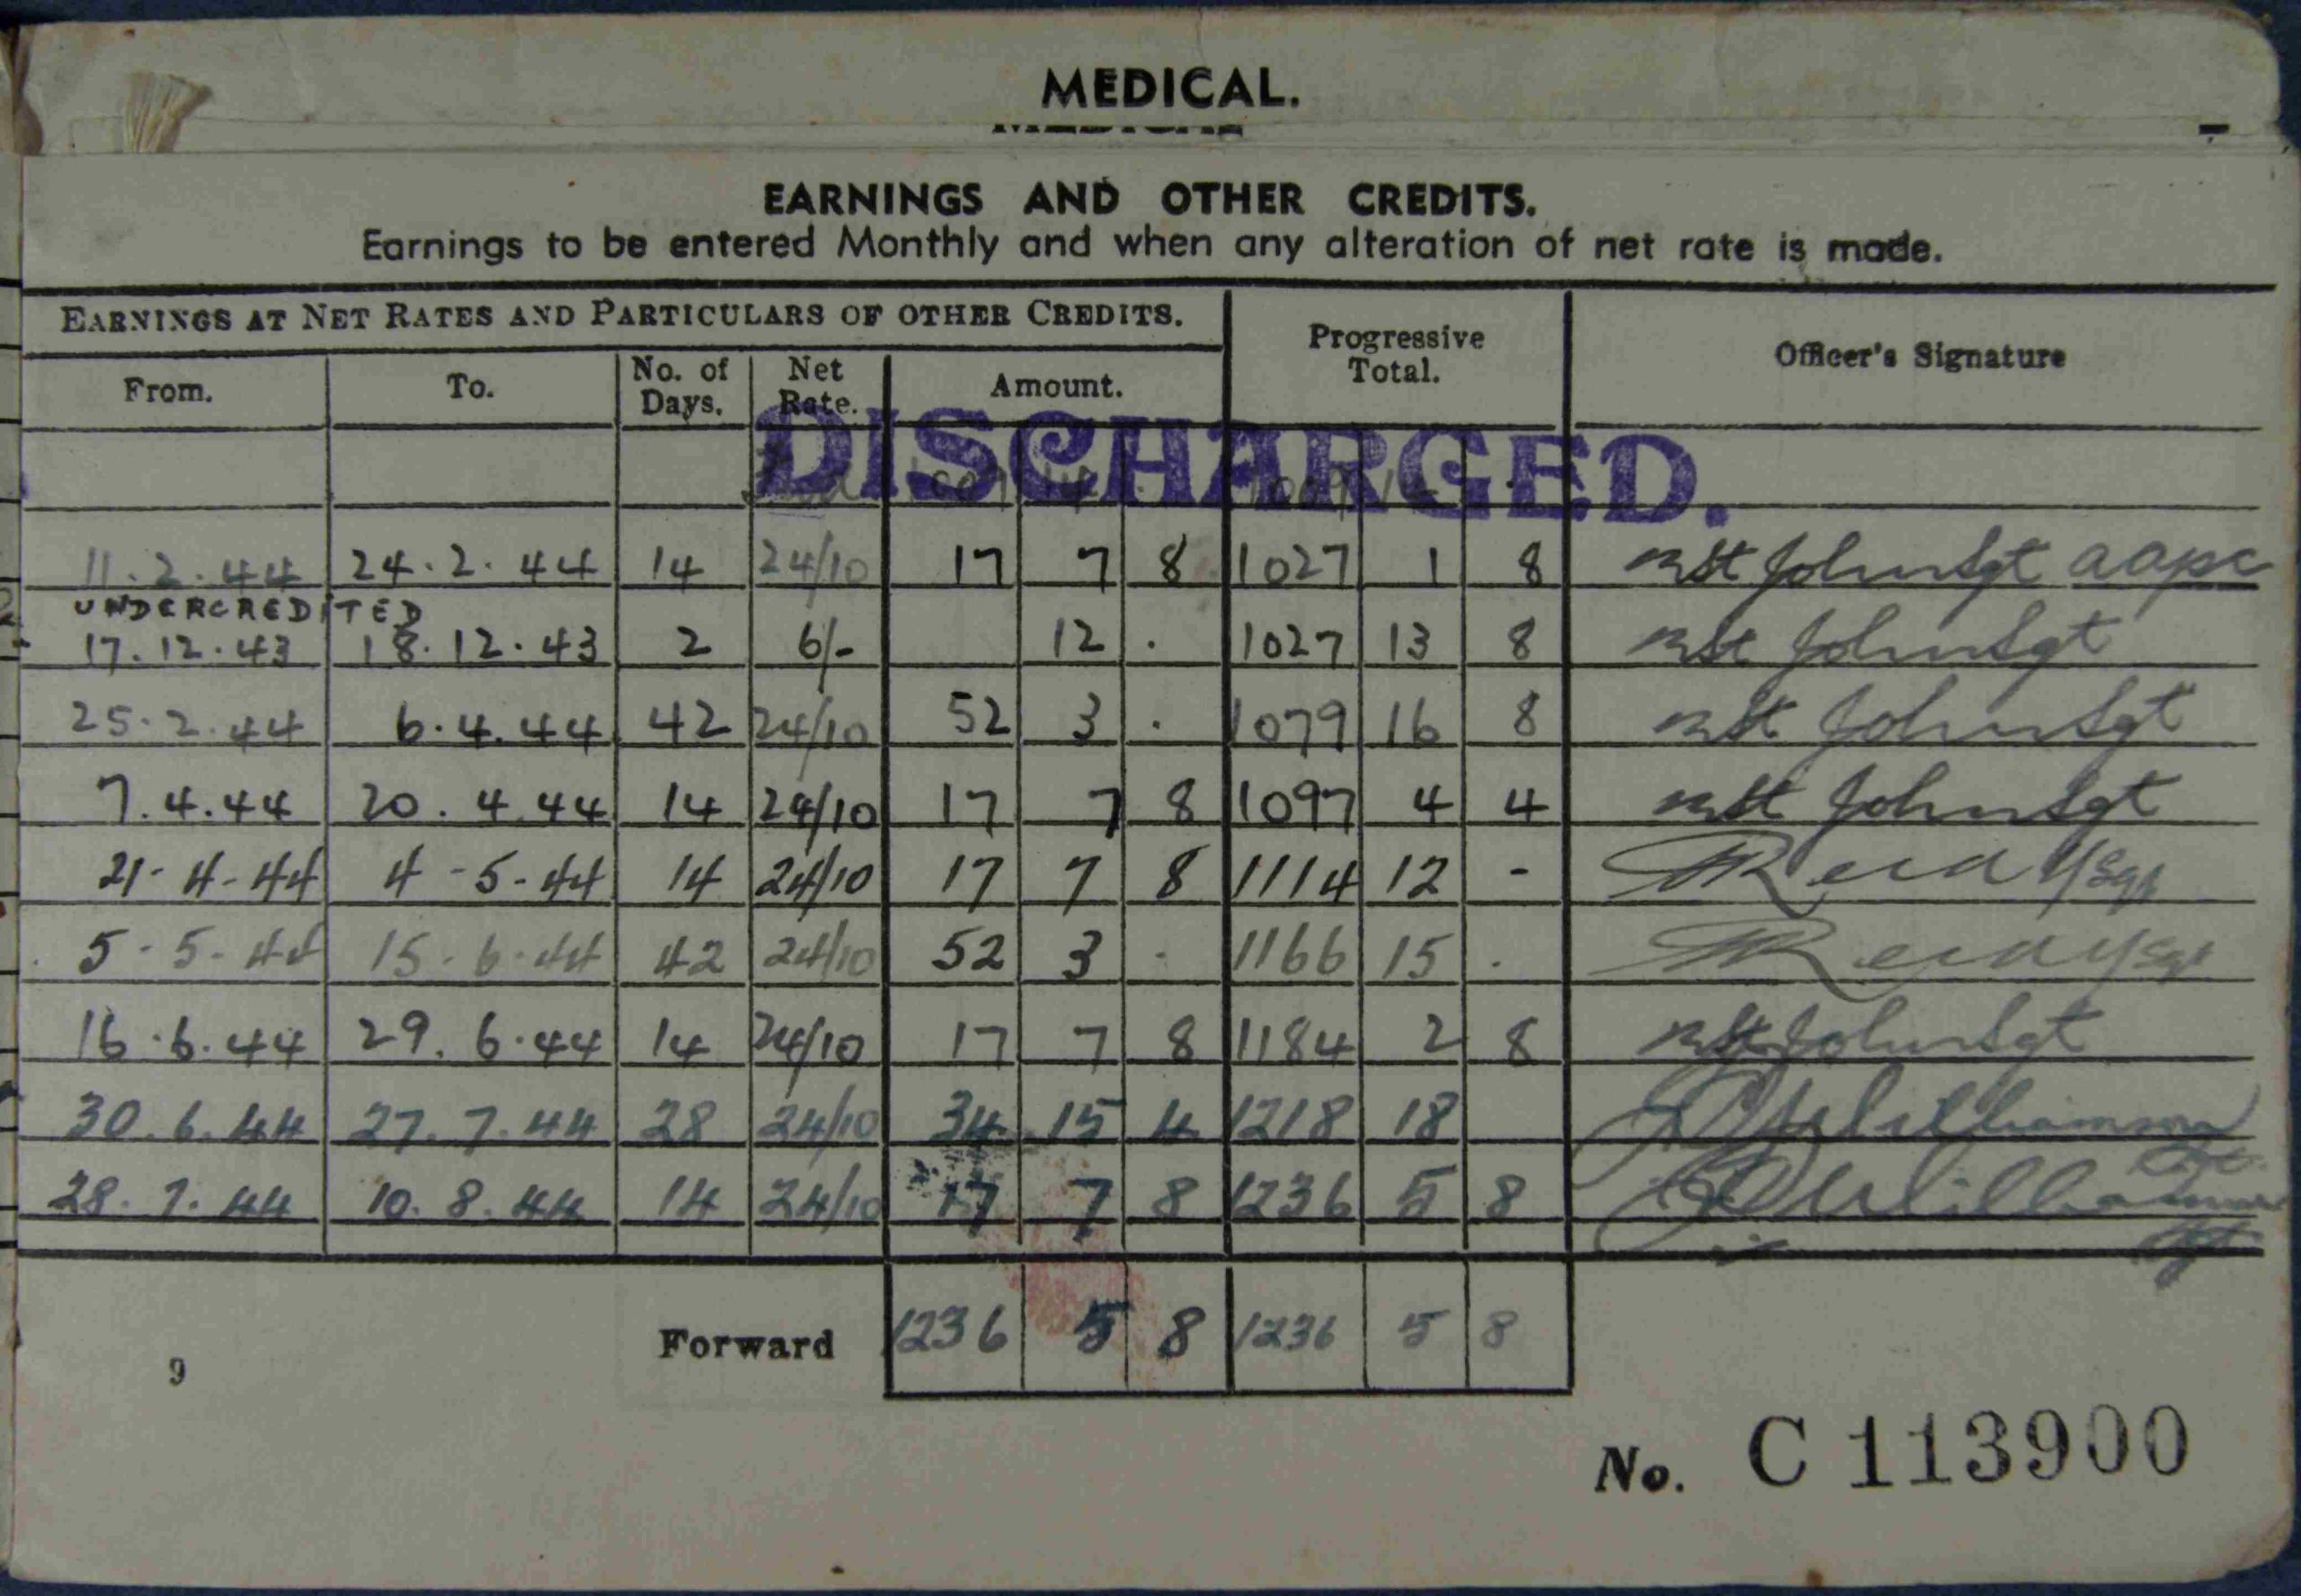 MEDICAL.
EARNINGS AND OTHER CREDITS.
Earnings to be entered Monthly and when any alteration of net rate is made.
EARNINGS AT NET RATES AND PARTICULARS OF OTHER CREDITS. Progressive Total. Officer's Signature
From. To. No. of Days. Net Rate. Amount.
DISCHARGED.
1009 14 . 1009 14 .
11.2.44 24.2.44 14 24/10 17 7 8 1027 1 8 St John Sgt aapc
UNDERCREDITED
17.12.43 18.12.43 2 6/- 12 . 1027 13 8 St John Sgt
25.2.44 6.4.44 42 24/10 52 3 . 1079 16 8 St John Sgt
7.4.44 20.4.44 14 24/10 17 7 8 1097 4 4 St John Sgt
21-4-44 4-5-44 14 24/10 17 7 8 1114 12 -
5-5-44 15-6-44 42 24/10 52 3 . 1166 15 .
16.6.44 29.6.44 14 24/10 17 7 8 1184 2 8 St John Sgt
30.6.44 27.7.44 28 24/10 34 15 4 1218 18 Williamson
28.7.44 10.8.44 14 24/10 17 7 8 1236 5 8 Williamson Sgt
Forward 1236 5 8 1236 5 8
9
No. C 113900